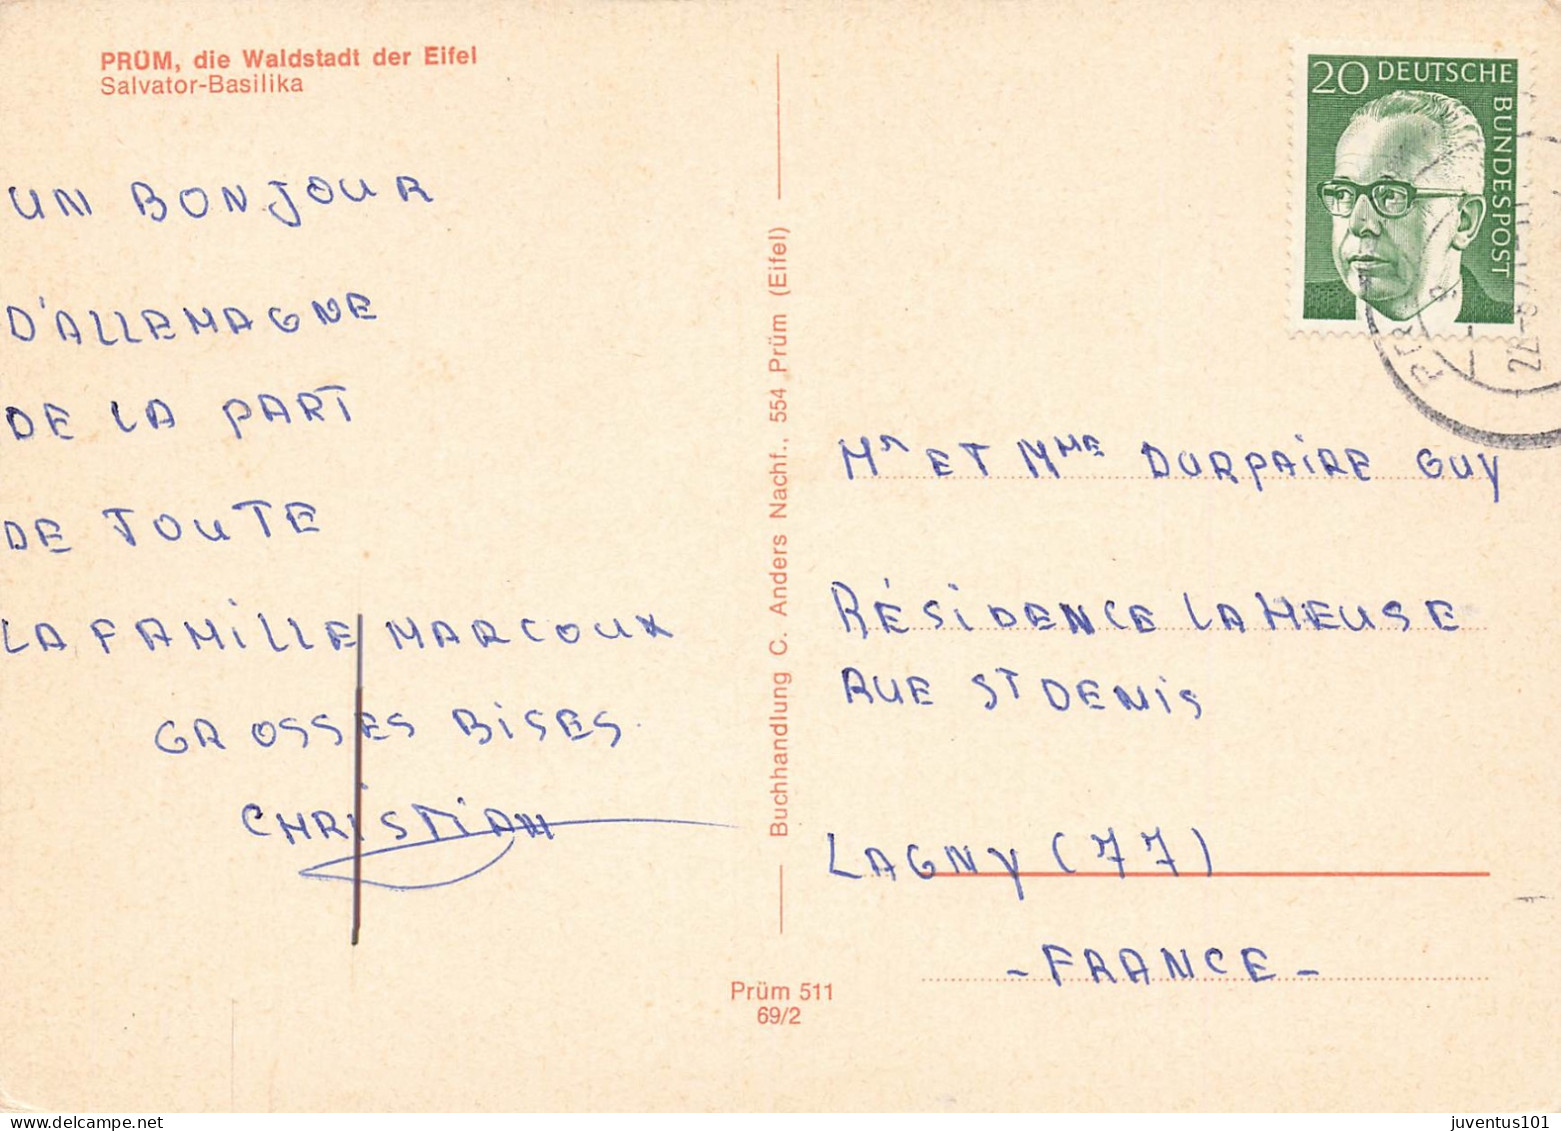 PRÜM, die Waldstadt der Eifel
Salvator-Basilika
UN BONJOUR
D'ALLEMAGNE
DE LA PART
DE TOUTE
LA FAMILLE MARCOUX
GROSSES BISES.
CHRISTIAN
Buchhandlung C. Anders Nachf., 554 Prüm (Eifel)
Prüm 511
69/2
20 DEUTSCHE
BUNDESPOST
Mr ET MME DURPAIRE GUY
RÉSIDENCE LA MEUSE
RUE ST DENIS
LAGNY (77)
- FRANCE -
juventus101